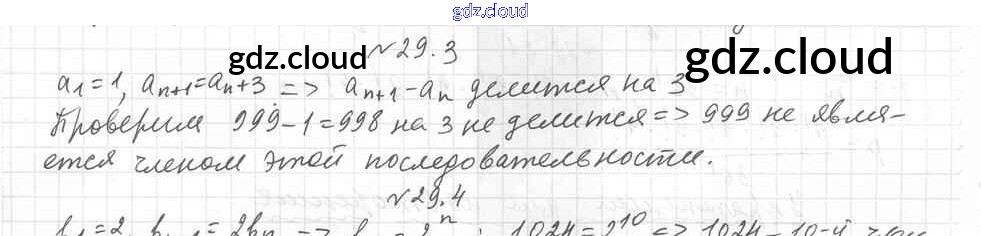 gdz.cloud
№29.3
gdz.cloud
gdz.cloud
a₁=1, aₙ₊₁=aₙ+3 => aₙ₊₁-aₙ делится на 3
Проверим 999-1=998 на 3 не делится => 999 не явля-
ется членом этой последовательности.
№29.4
1024=2¹⁰ => 1024-10-й